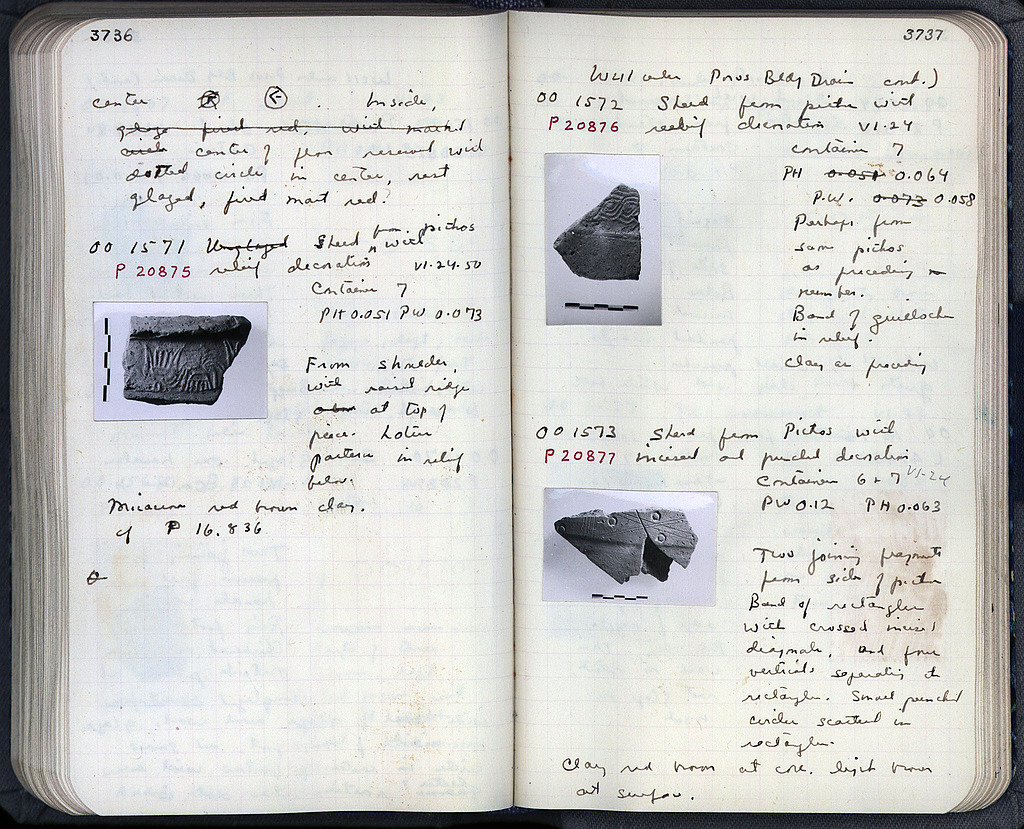 3736
center Inside,
glaze fired red, with
center of floor reserved with
dotted circle in center, rest
glazed, fired mart red.
OO 1571 Unglazed Sherd from pithos with
P 20875 relief decoration VI-24-50
Container 7
PH 0.051 PW 0.073
From shoulder,
with raised ridge
at top of
piece. Lotus
pattern in relief
below.
Micaceous red brown clay.
cf P 16,836
3737
Well under Poros Bldg Drain cont.)
OO 1572 Sherd from pithos with
P 20876 relief decoration VI-24
container 7
PH 0.051 0.064
P.W. 0.073 0.058
Perhaps from
same pithos
as preceding
number.
Band of guilloche
in relief.
Clay as preceding
OO 1573 Sherd from Pithos with
P 20877 incised and punched decoration
Container 6+7 VI-24
PW 0.12 PH 0.063
Two joining fragments
from side of pithos
Band of rectangles
with crossed incised
diagonals, and four
verticals separating the
rectangles. Small punched
circles scattered in
rectangles.
Clay red brown at core, light brown
at surface.